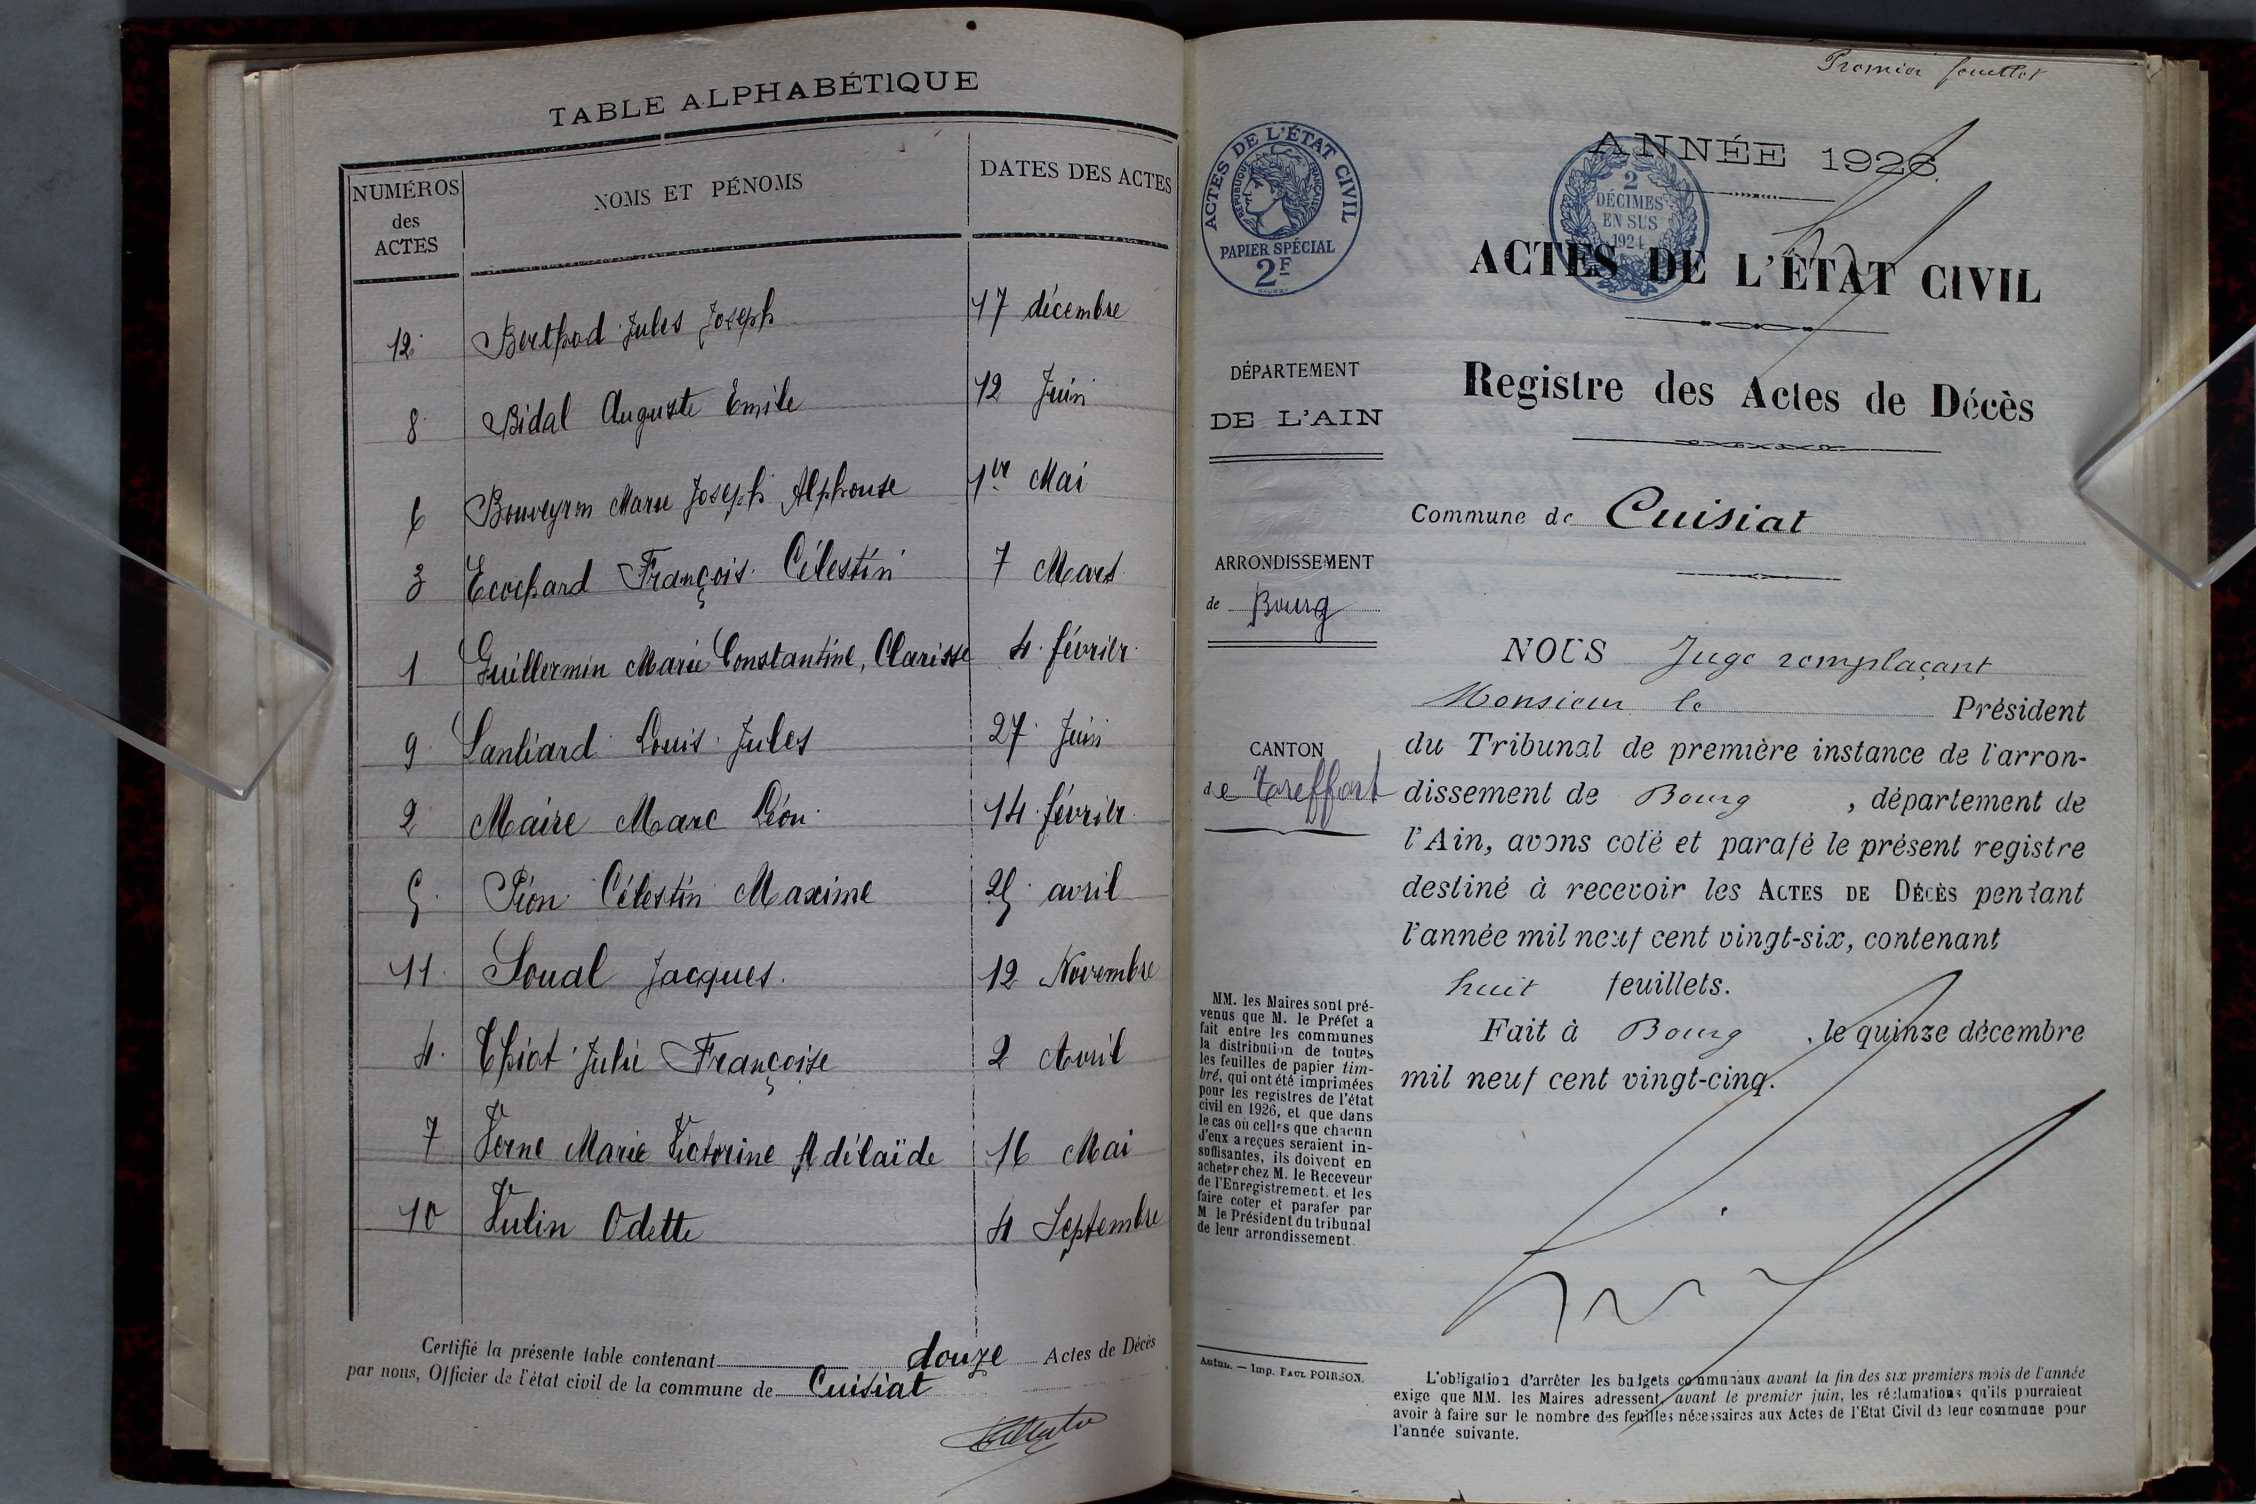 TABLE ALPHABÉTIQUE
NUMÉROS des ACTES
NOMS ET PÉNOMS
DATES DES ACTES
12 Berthod Jules Joseph 17 décembre
8 Bidal Auguste Emile 12 Juin
6 Bouveyron Marie Joseph Alphonse 1er Mai
3 Ecochard François Célestin 7 Mars
1 Guillermin Marie Constantine, Clarisse 4 février
9 Lanliard Louis Jules 27 Juin
2 Maire Marc Léon 14 février
5 Pion Célestin Maxime 25 avril
11 Soual Jacques 12 Novembre
4 Thiot Julie Françoise 2 Avril
7 Verne Marie Victorine Adélaïde 16 Mai
10 Vulin Odette 4 Septembre
Certifié la présente table contenant douze Actes de Décès
par nous, Officier de l'état civil de la commune de Cuisiat
Premier feuillet
ACTES DE L'ÉTAT CIVIL
RÉPUBLIQUE FRANÇAISE
PAPIER SPÉCIAL
2F
2
DÉCIMES
EN SUS
1924
ANNÉE 1926.
ACTES DE L'ÉTAT CIVIL
Registre des Actes de Décès
Commune de Cuisiat
DÉPARTEMENT
DE L'AIN
ARRONDISSEMENT
de Bourg
CANTON
de Treffort
MM. les Maires sont pré-
venus que M. le Préfet a
fait entre les communes
la distribution de toutes
les feuilles de papier tim-
bré, qui ont été imprimées
pour les registres de l'état
civil en 1926, et que dans
le cas où celles que chacun
d'eux a reçues seraient in-
suffisantes, ils doivent en
acheter chez M. le Receveur
de l'Enregistrement, et les
faire coter et parafer par
M. le Président du tribunal
de leur arrondissement.
Autun. — Imp. PAUL POIRSON.
NOUS Juge remplaçant
Monsieur le Président
du Tribunal de première instance de l'arron-
dissement de Bourg, département de
l'Ain, avons coté et parafé le présent registre
destiné à recevoir les ACTES DE DÉCÈS pendant
l'année mil neuf cent vingt-six, contenant
huit feuillets.
Fait à Bourg, le quinze décembre
mil neuf cent vingt-cinq.
L'obligation d'arrêter les budgets communaux avant la fin des six premiers mois de l'année
exige que MM. les Maires adressent, avant le premier juin, les réclamations qu'ils pourraient
avoir à faire sur le nombre des feuilles nécessaires aux Actes de l'Etat Civil de leur commune pour
l'année suivante.